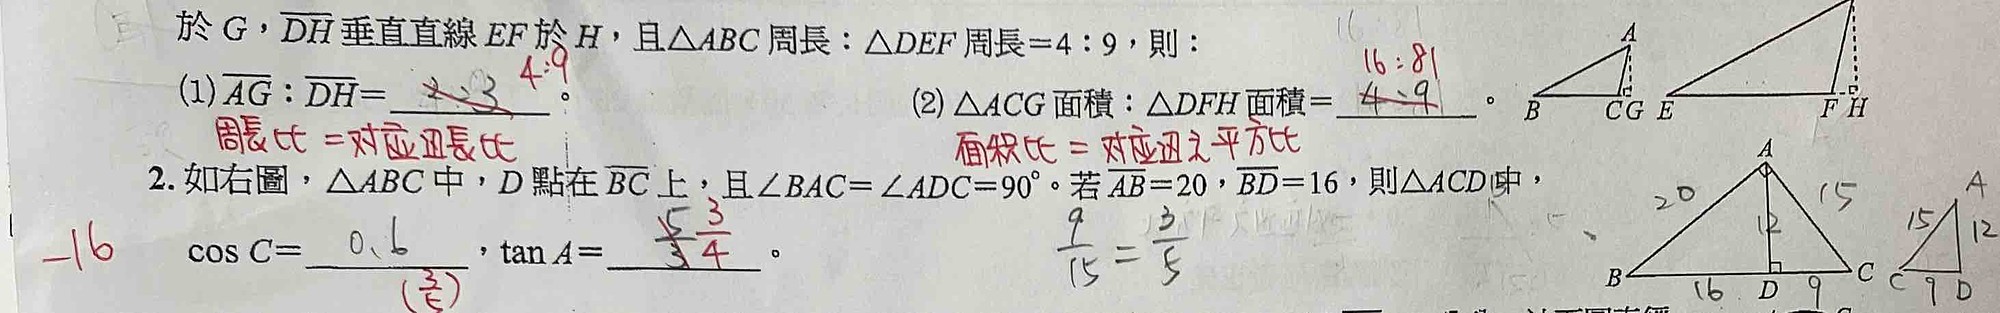 於 G，DH 垂直直線 EF 於 H，且△ABC 周長：△DEF 周長＝4：9，則：
16:81
4:9
16:81
(1) AG：DH＝ 。
(2) △ACG 面積：△DFH 面積＝ 4:9 。
周長比 = 对应边長比
面积比 = 对应边之平方比
A
B C G E F H
2. 如右圖，△ABC 中，D 點在 BC 上，且∠BAC＝∠ADC＝90°。若 AB＝20，BD＝16，則△ACD 中，
-16
cos C＝ 0.6 ，tan A＝ 5/3 3/4 。
(3/5)
9/15 = 3/5
A
20 15
12
B 16 D 9 C
A
15 12
C 9 D